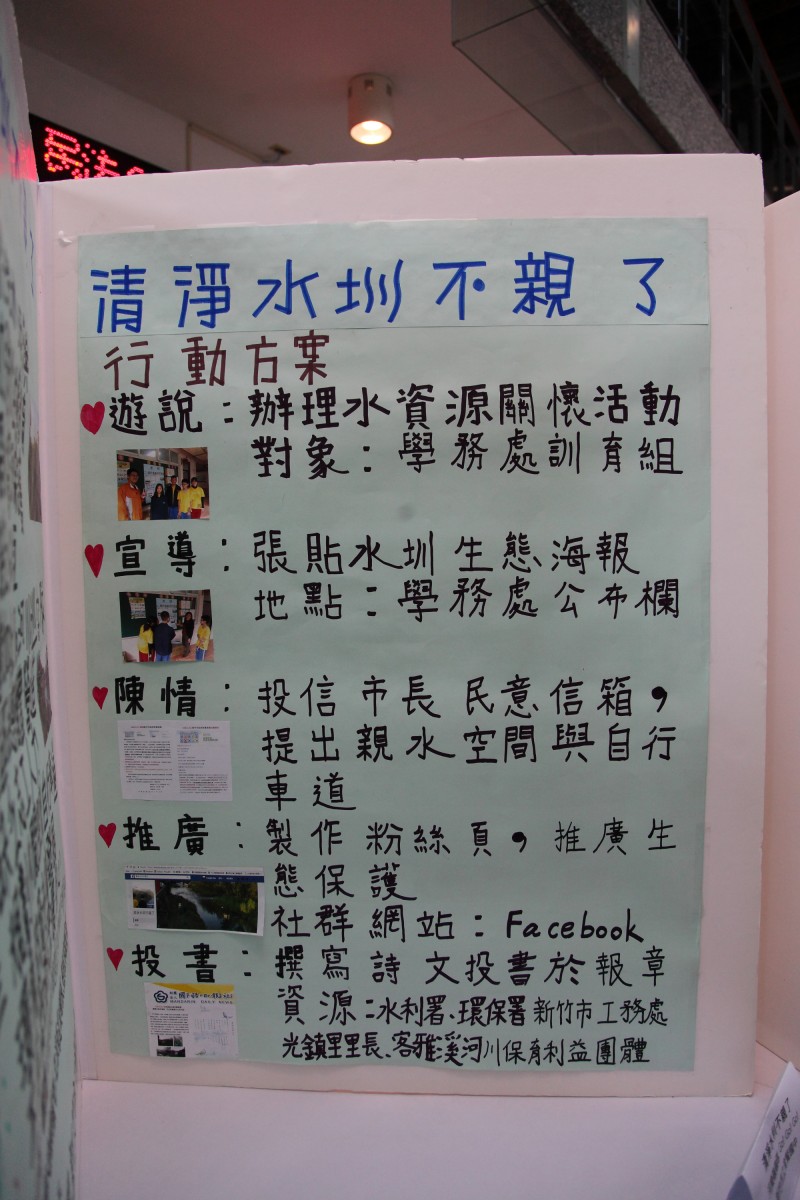 清淨水圳不親了
行動方案
遊說：辦理水資源關懷活動
對象：學務處訓育組
宣導：張貼水圳生態海報
地點：學務處公布欄
陳情：投信市長民意信箱，
提出親水空間與自行
車道
推廣：製作粉絲頁，推廣生
態保護
社群網站：Facebook
投書：撰寫詩文投書於報章
資源：水利署、環保署新竹市工務處
光鎮里里長、客雅溪河川保育利益團體